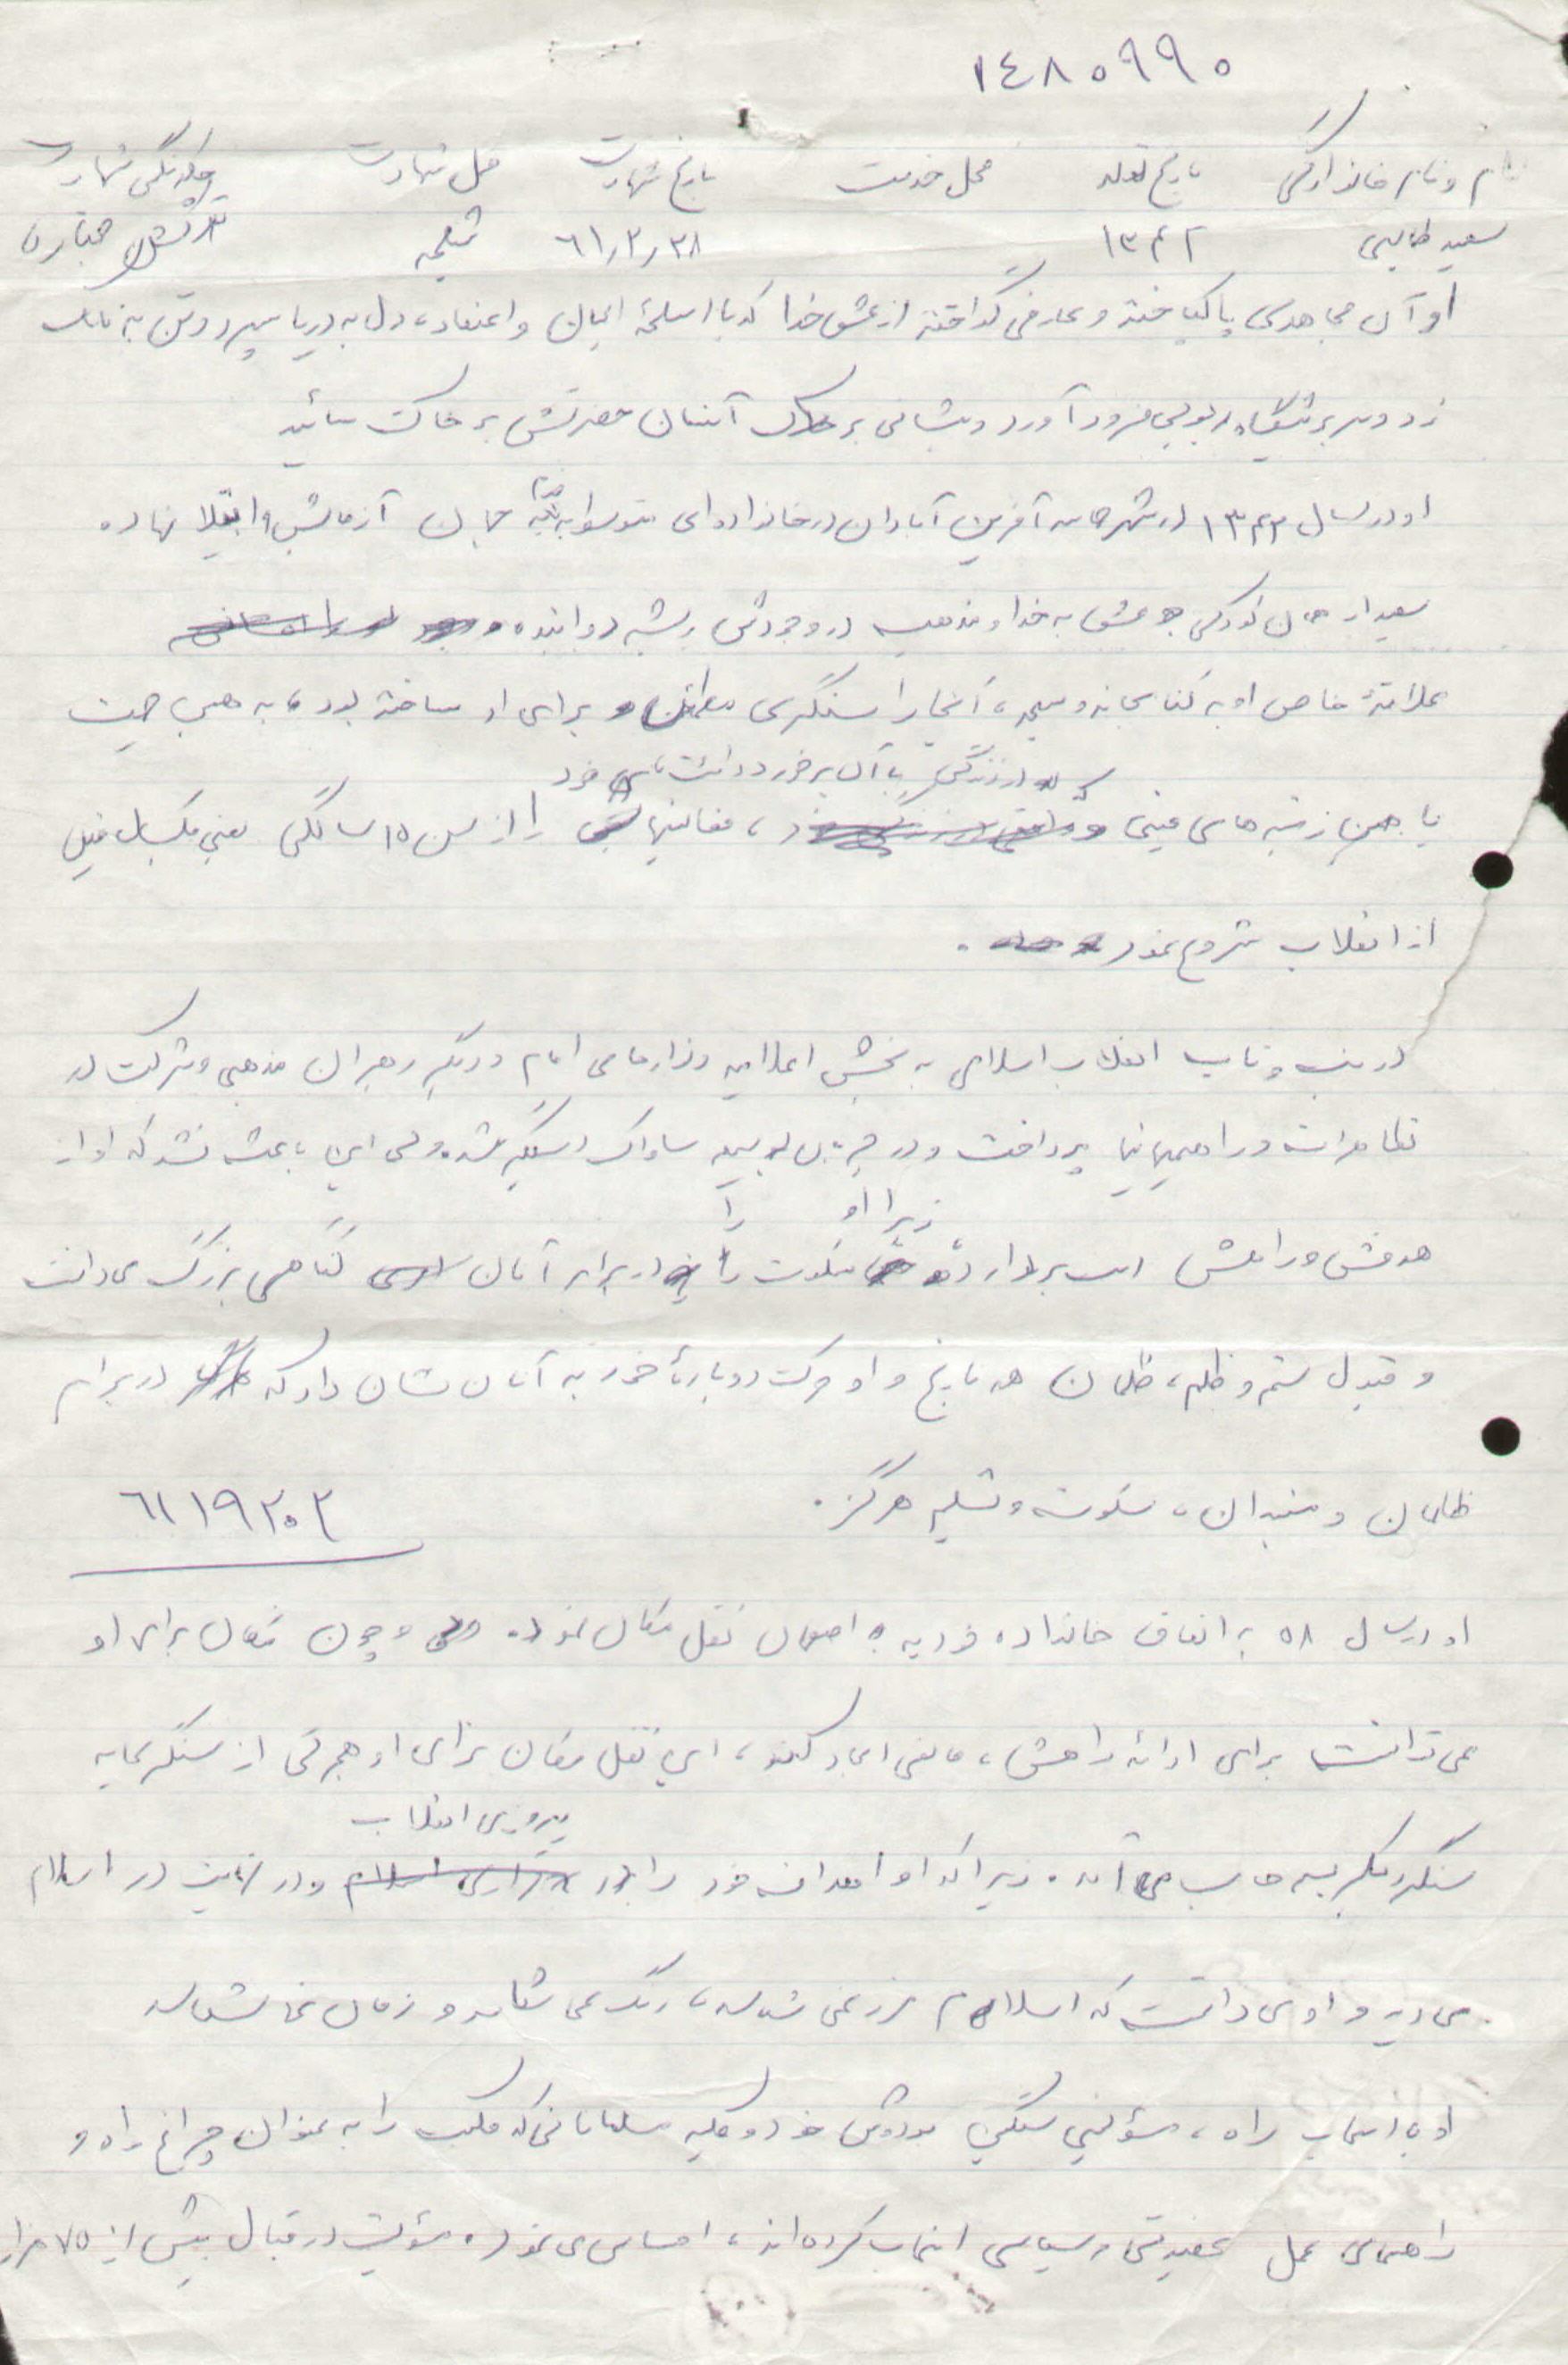 ۱٤۸۰۹۹۰
نام و نام خانوادگی تاریخ تولد محل خدمت تاریخ شهادت محل شهادت چگونگی شهادت
سعید طالبی ۱۳۴۲ ۶۱/۲/۲۸ شلمچه
او آن مجاهدی پاکباخته و عارفی گداخته از عشق خدا که با اسلحهٔ ایمان و اعتقاد، دل به دریا سپرد و تن به
زد و سر بر پیشگاه ربوبی فرود آورد و پیشانی بر آستان حضرتش بر خاک سائید
او در سال ۱۳۴۲ در شهر حماسه آفرین آبادان در خانواده‌ای متوسط پا به جهان آزمایش و ابتلا نهاد.
سعید از همان کودکی عشق به خدا و مذهب در وجودش ریشه دوانیده
علاقهٔ خاص او به کتابخانه و مسجد، آنجا را سنگری مطمئن برای او ساخته بود، به همین جهت
که در زندگی با آن برخورد داشت، خود
با همین زمینه‌های عینی ، فعالیتهای را از سن ۱۵ سالگی یعنی یکسال قبل
از انقلاب شروع نمود.
در تب و تاب انقلاب اسلامی به پخش اعلامیه و نوارهای امام و دیگر رهبران مذهبی و شرکت در
تظاهرات و راهپیمائیها پرداخت و در جریان بوسیله ساواک دستگیر شد، ولی این باعث نشد که او از
زیرا او را
هدفش و راهش دست بردارد، سکوت در برابر آنان گناهی بزرگ می‌دانست
و قبول ستم و ظلم، ظالمان هر تاریخ و او حرکت دوبارهٔ خود به آنان نشان داد که در برابر
ظالمان و مستبدان، سکوت و تسلیم هرگز.
۶۱۱۹۲۰۲
او در سال ۵۸ به اتفاق خانواده خود به اصفهان نقل مکان نمود. و چون مکان برای او
نمی‌توانست برای ادامهٔ راهش، مانعی ایجاد کند، این نقل مکان برای او هجرتی از سنگری به
پیروزی انقلاب
سنگر دیگر به حساب می‌آمد. زیرا که او اهداف خود را در و در نهایت در اسلام
می‌دید و او می‌دانست که اسلام مرز نمی‌شناسد، رنگ نمی‌شناسد و زمان نمی‌شناسد
او با انتخاب راه، مسئولیتی سنگین بر دوش خود و کلیه مسلمانانی که مکتب را به عنوان چراغ راه و
راهنمای عمل عقیدتی و سیاسی انتخاب کرده‌اند، احساس می‌نمود. مسئولیت در قبال بیش از ۷۵ هزار